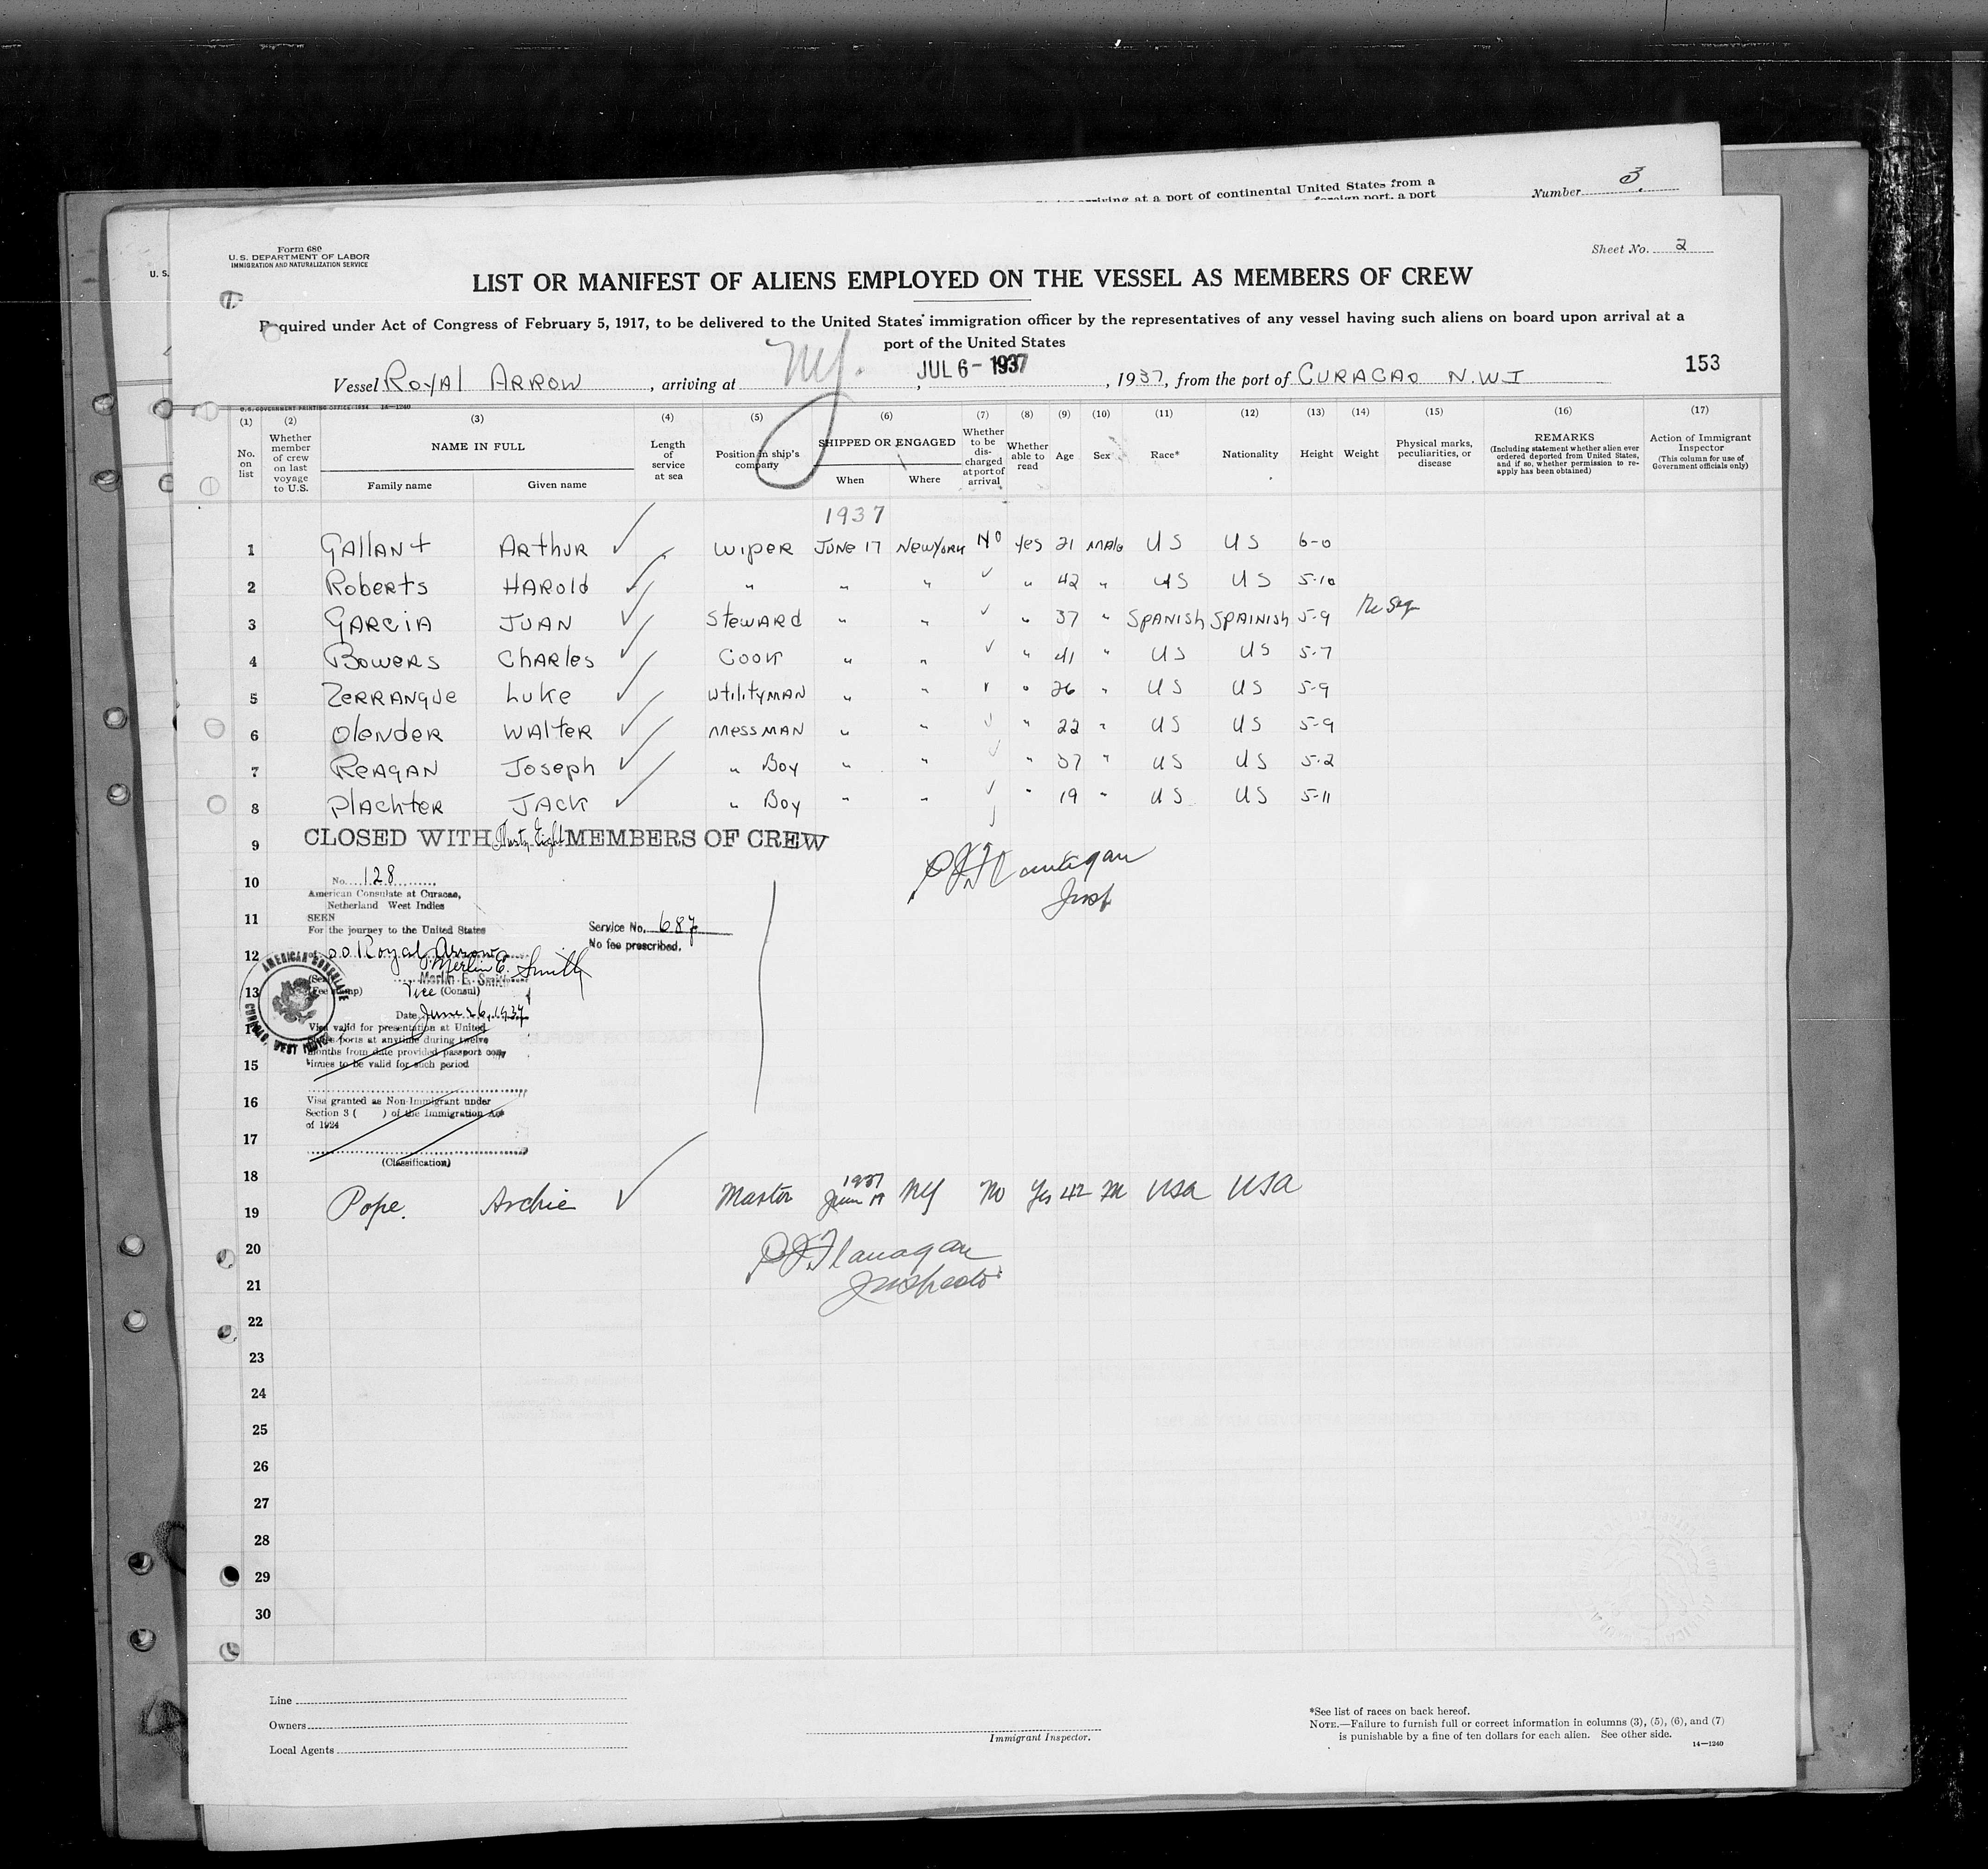 arriving at a port of continental United States from a
foreign port, a port
Number 3
Form 680
U. S. DEPARTMENT OF LABOR
IMMIGRATION AND NATURALIZATION SERVICE
U. S.
Sheet No. 2
LIST OR MANIFEST OF ALIENS EMPLOYED ON THE VESSEL AS MEMBERS OF CREW
Required under Act of Congress of February 5, 1917, to be delivered to the United States immigration officer by the representatives of any vessel having such aliens on board upon arrival at a
port of the United States
Vessel ROYAL ARROW, arriving at NY., JUL 6 - 1937, 1937, from the port of CURACAO N.W.I
153
U.S. GOVERNMENT PRINTING OFFICE: 1934 14—1240
(1) (2) (3) (4) (5) (6) (7) (8) (9) (10) (11) (12) (13) (14) (15) (16) (17)
No. on list
Whether member of crew on last voyage to U.S.
NAME IN FULL
Family name Given name
Length of service at sea
Position in ship's company
SHIPPED OR ENGAGED
When Where
Whether to be discharged at port of arrival
Whether able to read
Age Sex Race* Nationality Height Weight
Physical marks, peculiarities, or disease
REMARKS
(Including statement whether alien ever ordered deported from United States, and if so, whether permission to reapply has been obtained)
Action of Immigrant Inspector
(This column for use of Government officials only)
1937
1 GALLANT ARTHUR WIPER JUNE 17 NEWYORK NO Yes 21 MALE US US 6-0
2 ROBERTS HAROLD " " " " 42 " US US 5-10
3 GARCIA JUAN STEWARD " " " 37 " SPANISH SPAINISH 5-9
4 BOWERS CHARLES COOK " " " 41 " US US 5-7
5 ZERRANGUE LUKE UTILITYMAN " " " 26 " US US 5-9
6 OLENDER WALTER MESSMAN " " " 22 " US US 5-9
7 REAGAN JOSEPH " BOY " " " 37 " US US 5-2
8 PLACHTER JACK " BOY " " " 19 " US US 5-11
9 CLOSED WITH Thirty Eight MEMBERS OF CREW
10
No. 128
American Consulate at Curacao,
Netherland West Indies
11
SEEN
For the journey to the United States
Service No. 687
No fee prescribed.
12
Royal Arrow
Merlin E. Smith
Merlin E. Smith
13
(Fee stamp) Vice (Consul)
AMERICAN CONSULATE
CURACAO, WEST INDIES
Date June 26, 1937
14
Visa valid for presentation at United
States ports at anytime during twelve
months from date provided passport con-
tinues to be valid for such period
15
16
Visa granted as Non-Immigrant under
Section 3 ( ) of the Immigration Act
of 1924
17
(Classification)
18
19 Pope. Archie Master 1937 June 17 NY No Yes 42 M USA USA
20
P J Flanagan
21
Inspector
22
23
24
25
26
27
28
29
30
Line
Owners
Local Agents
Immigrant Inspector.
*See list of races on back hereof.
NOTE.—Failure to furnish full or correct information in columns (3), (5), (6), and (7)
is punishable by a fine of ten dollars for each alien. See other side.
14—1240